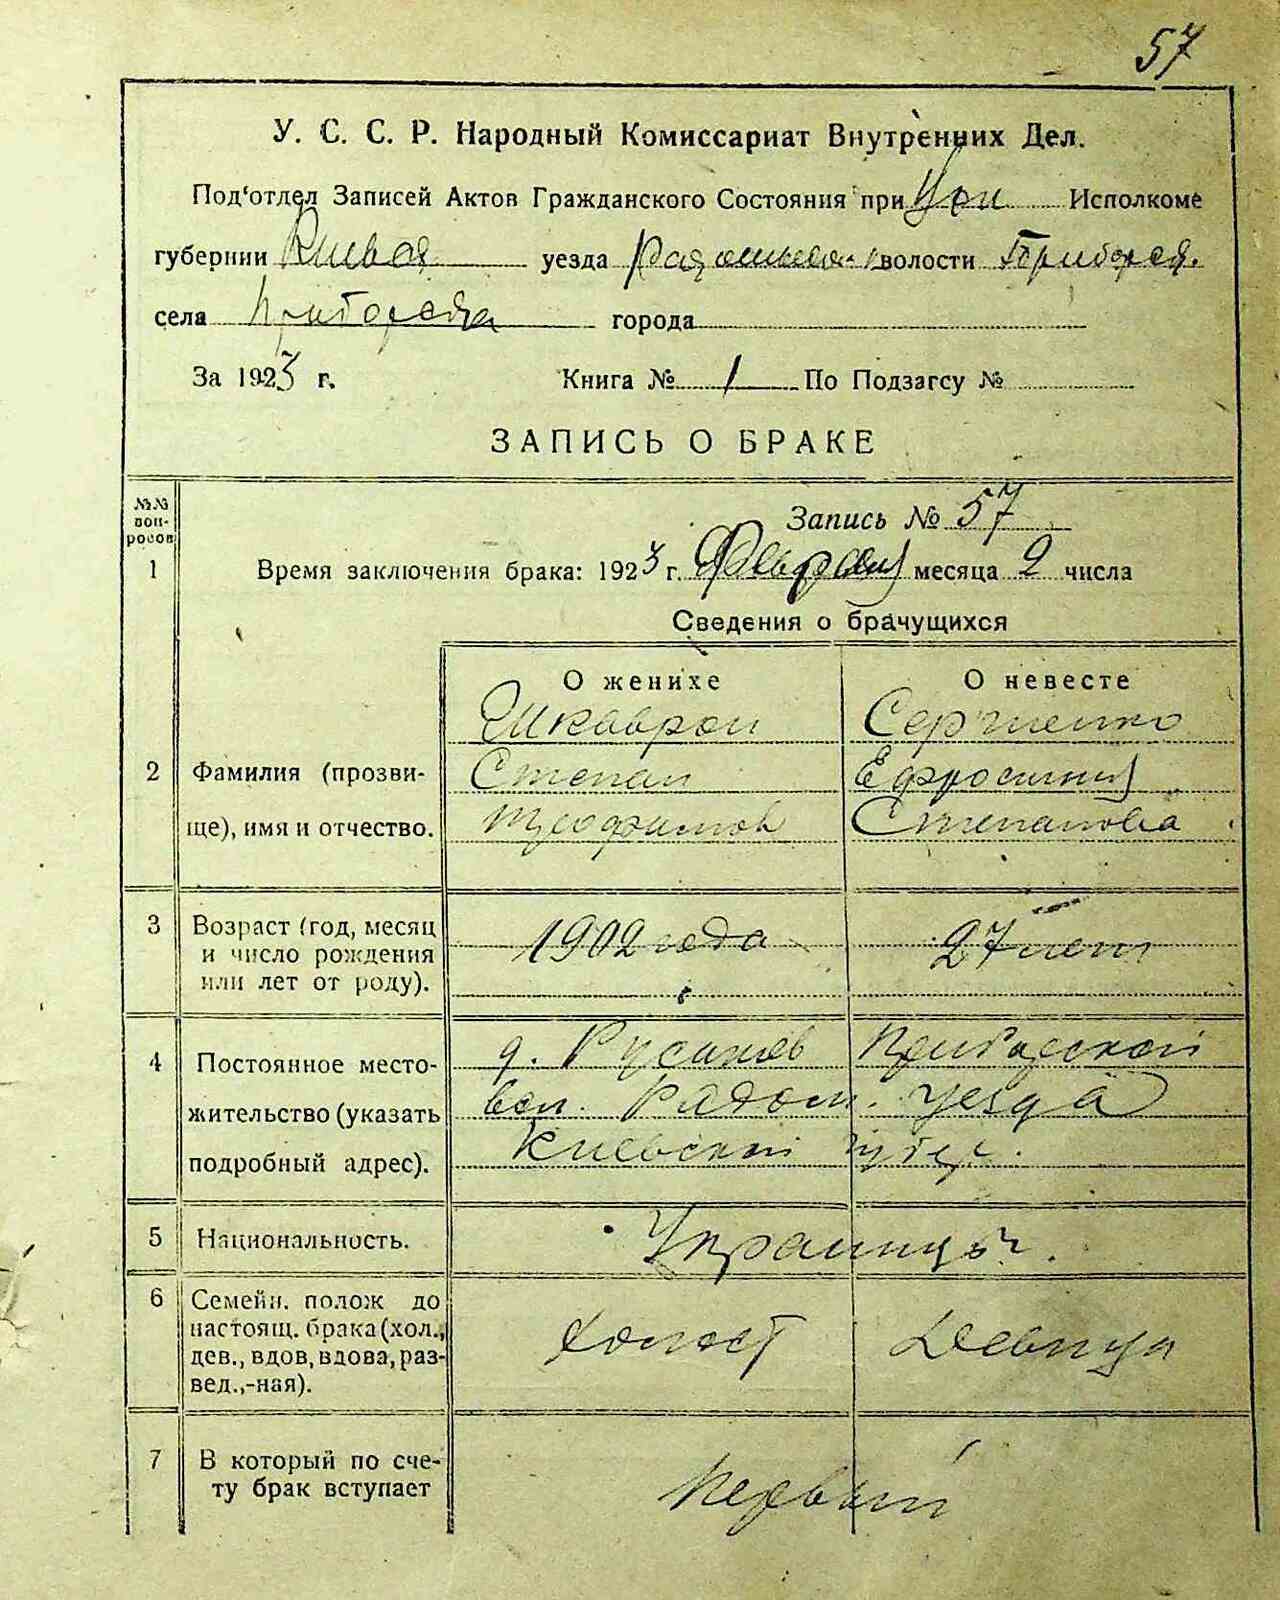 57
У. С. С. Р. Народный Комиссариат Внутренних Дел.
Под'отдел Записей Актов Гражданского Состояния при Исполкоме
губернии уезда волости
села города
За 1923 г. Книга № 1 По Подзагсу №
ЗАПИСЬ О БРАКЕ
№№ воп-росов
Запись № 57
1 Время заключения брака: 1923 г. Февраля месяца 2 числа
Сведения о брачущихся
О женихе О невесте
Шкаврон Сергиенко
2 Фамилия (прозви- Степан Ефросиния
ще), имя и отчество. Трофимов Степанова
3 Возраст (год, месяц
и число рождения 1902 года 27 лет
или лет от роду).
4 Постоянное место- д. Приборской
жительство (указать вол. Радом. уезда
подробный адрес). Киевской губер.
5 Национальность. Украинцы
6 Семейн. полож до
настоящ. брака (хол., холост Девица
дев., вдов, вдова, раз-
вед.,-ная).
7 В который по сче-
ту брак вступает Первый